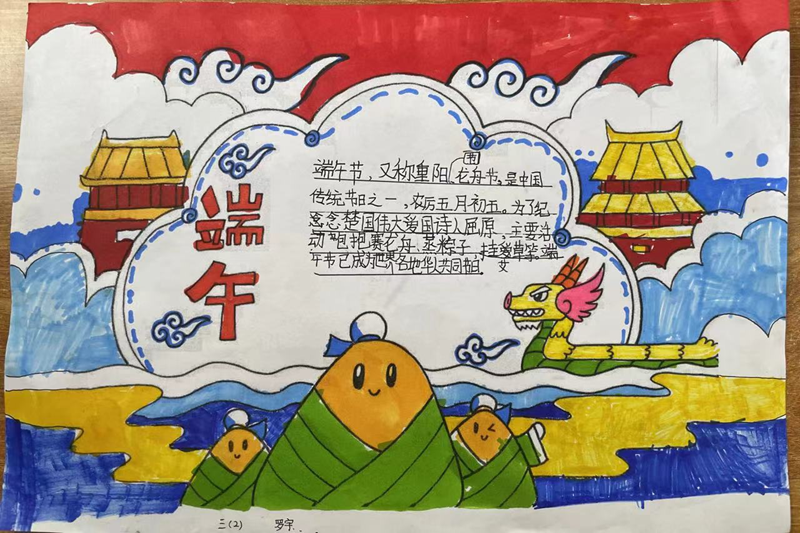 端午
端午节，又称重阳龙舟节，是中国
传统节日之一，农历五月初五。为了纪
念念楚国伟大爱国诗人屈原、主要活
动包括赛龙舟、蒸粽子，挂爱草等端
艾
午节已成为世界各地华人共同节日.
三(2) 罗宇